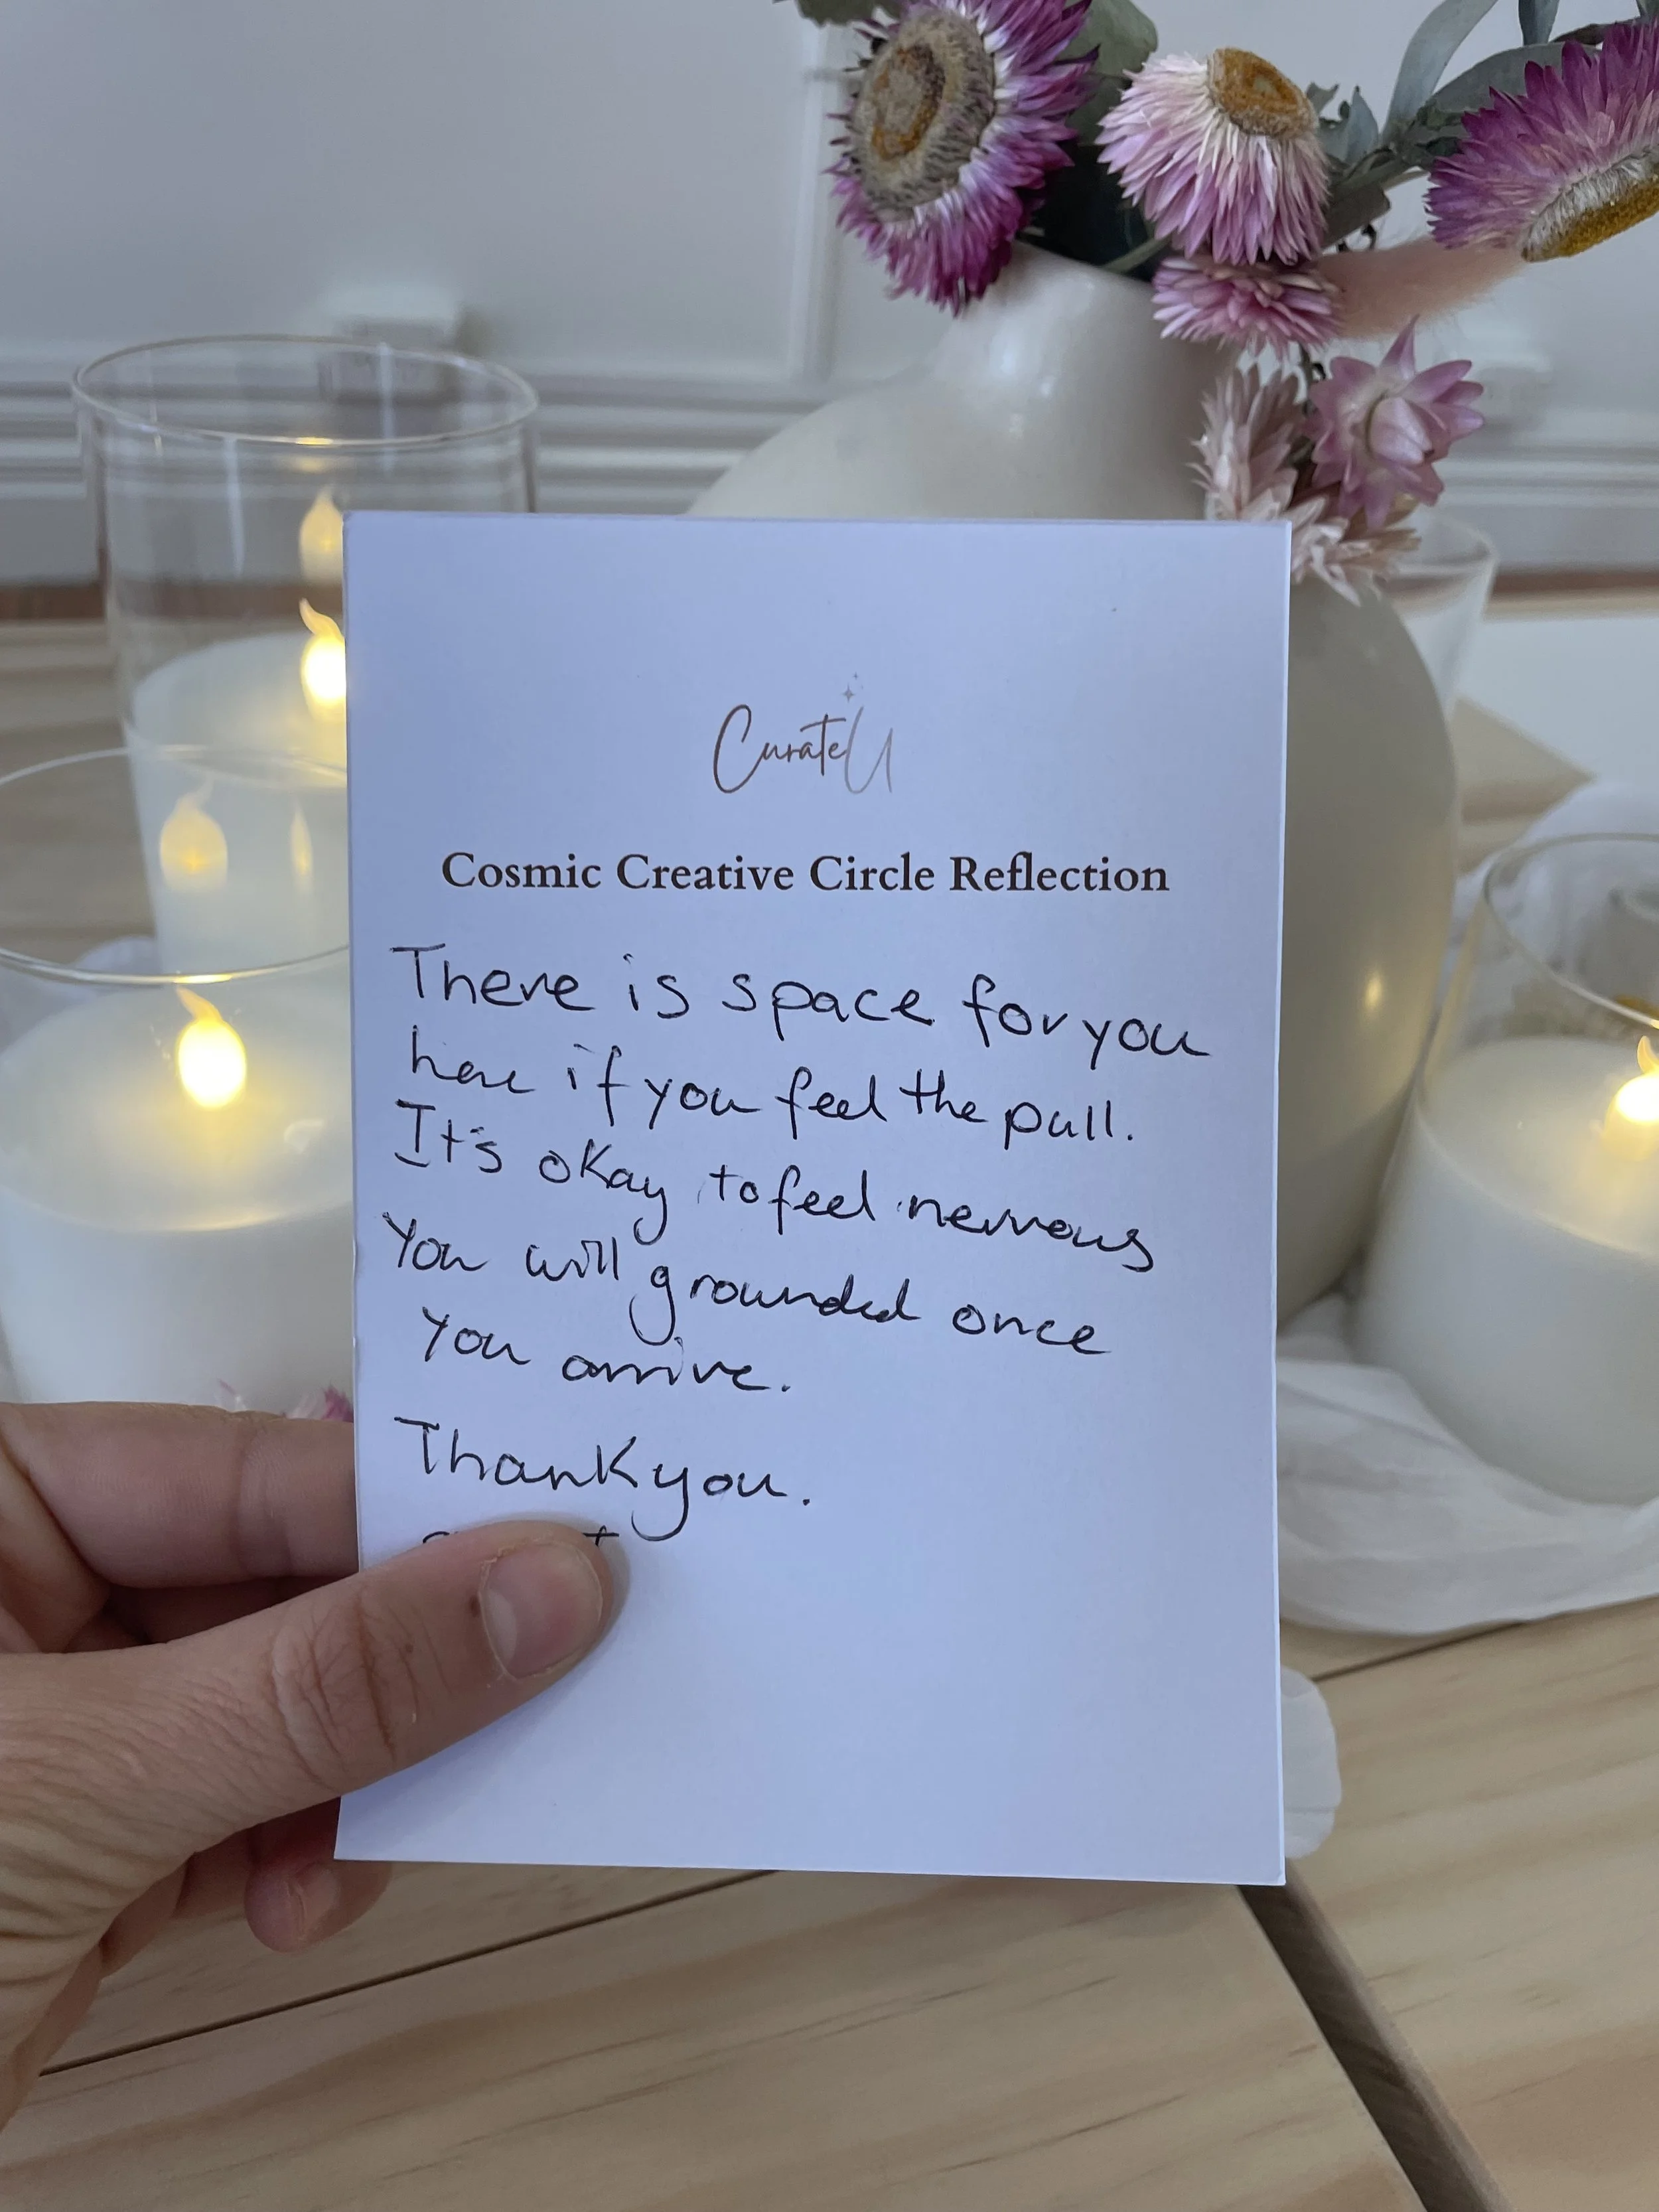 CurateU
Cosmic Creative Circle Reflection
There is space for you
here if you feel the pull.
It's okay to feel nervous
You will grounded once
you arrive.
Thank you.